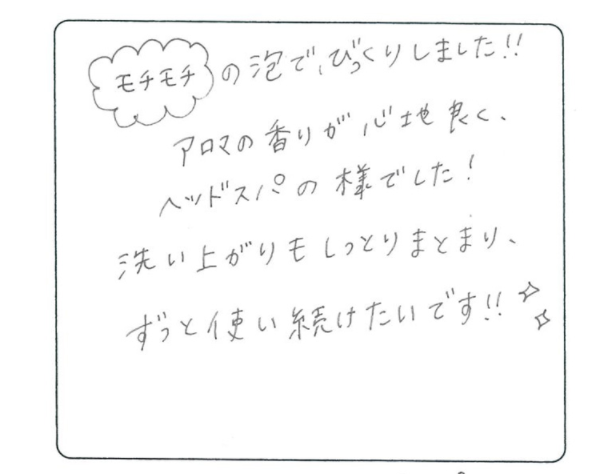 モチモチの泡で、びっくりしました!!
アロマの香りが心地良く、
ヘッドスパの様でした!
洗い上がりもしっとりまとまり、
ずっと使い続けたいです!!